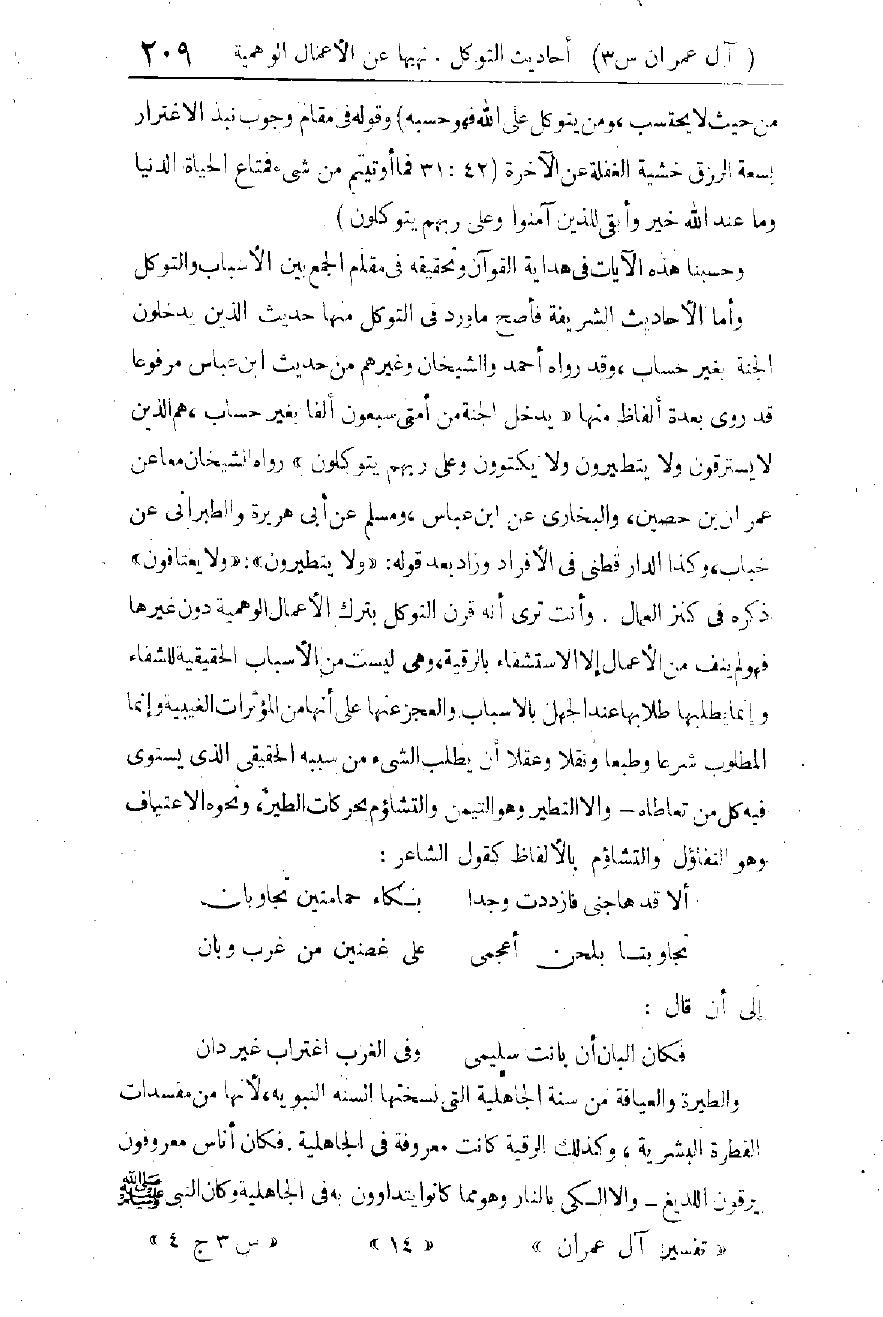 ( آل عمران س٣ ) أحاديث التوكل . نهيها عن الأعمال الوهمية ٢٠٩
من حيث لا يحتسب ، ومن يتوكل على الله فهو حسبه ) وقوله فى مقام وجوب نبذ الاغترار
بسعة الرزق خشية الغفلة عن الآخرة ( ٤٢ : ٣١ فما أوتيتم من شىء فمتاع الحياة الدنيا
وما عند الله خير وأبقى للذين آمنوا وعلى ربهم يتوكلون )
وحسبنا هذه الآيات فى هداية القرآن وتحقيقه فى مقام الجمع بين الأسباب والتوكل
وأما الأحاديث الشريفة فأصح ماورد فى التوكل منها حديث الذين يدخلون
الجنة بغير حساب ، وقد رواه أحمد والشيخان وغيرهم من حديث ابن عباس مرفوعا
قد روى بعدة ألفاظ منها « يدخل الجنة من أمتى سبعون ألفا بغير حساب ، هم الذين
لا يسترقون ولا يتطيرون ولا يكتوون وعلى ربهم يتوكلون » رواه الشيخان معا عن
عمران بن حصين ، والبخارى عن ابن عباس ، ومسلم عن أبى هريرة والطبرانى عن
خباب ، وكذا الدار قطنى فى الأفراد وزاد بعد قوله : « ولا يتطيرون » : « ولا يعتافون »
ذكره فى كنز العمال . وأنت ترى أنه قرن التوكل بترك الأعمال الوهمية دون غيرها
فهو لم ينف من الأعمال إلا الاستشفاء بالرقية ، وهى ليست من الأسباب الحقيقية للشفاء
وإنما يطلبها طلابها عند الجهل بالاسباب والعجز عنها على أنها من المؤثرات الغيبية وإنما
المطلوب شرعا وطبعا ونقلا وعقلا أن يطلب الشىء من سببه الحقيقى الذى يستوى
فيه كل من تعاطاه – والا التطير وهو التيمن والتشاؤم بحركات الطير ، ونحوه الاعتياف
وهو التفاؤل والتشاؤم بالألفاظ كقول الشاعر :
ألا قد هاجنى فازددت وجدا بكاء حمامتين تجاوبان
تجاوبتا بلحن أعجمى على غصنين من غرب وبان
إلى أن قال :
فكان البان أن بانت سليمى وفى الغرب اغتراب غير دان
والطيرة والعيافة من سنة الجاهلية التى نسختها السنه النبويه ، لأنها من مفسدات
الفطرة البشرية ، وكذلك الرقية كانت معروفة فى الجاهلية . فكان أناس معروفون
يرقون اللديغ – والا الكى بالنار وهو مما كانوا يتداوون به فى الجاهلية وكان النبى ﷺ
« تفسير آل عمران » « ١٤ » « س ٣ ج ٤ »